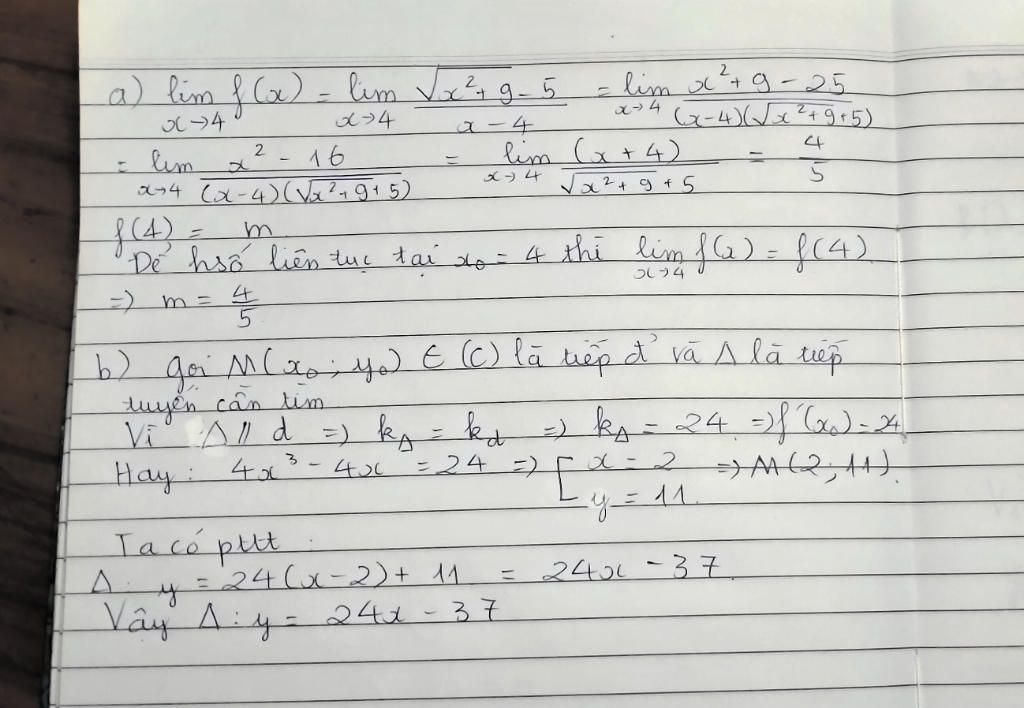 a) lim_{x→4} f(x) = lim_{x→4} (√(x²+9) - 5)/(x - 4) = lim_{x→4} (x²+9-25)/((x-4)(√(x²+9)+5))
= lim_{x→4} (x² - 16)/((x-4)(√(x²+9)+5)) = lim_{x→4} (x+4)/(√(x²+9)+5) = 4/5
f(4) = m
Để hsố liên tục tại x₀ = 4 thì lim_{x→4} f(x) = f(4)
=> m = 4/5
b) gọi M(x₀; y₀) ∈ (C) là tiếp đ' và Δ là tiếp
tuyến cần tìm
Vì Δ // d => k_Δ = k_d => k_Δ = 24 => f'(x₀) = 24
Hay: 4x³ - 4x = 24 => [ x = 2 => M(2; 11).
y = 11.
Ta có pttt:
Δ: y = 24(x-2) + 11 = 24x - 37.
Vậy Δ: y = 24x - 37